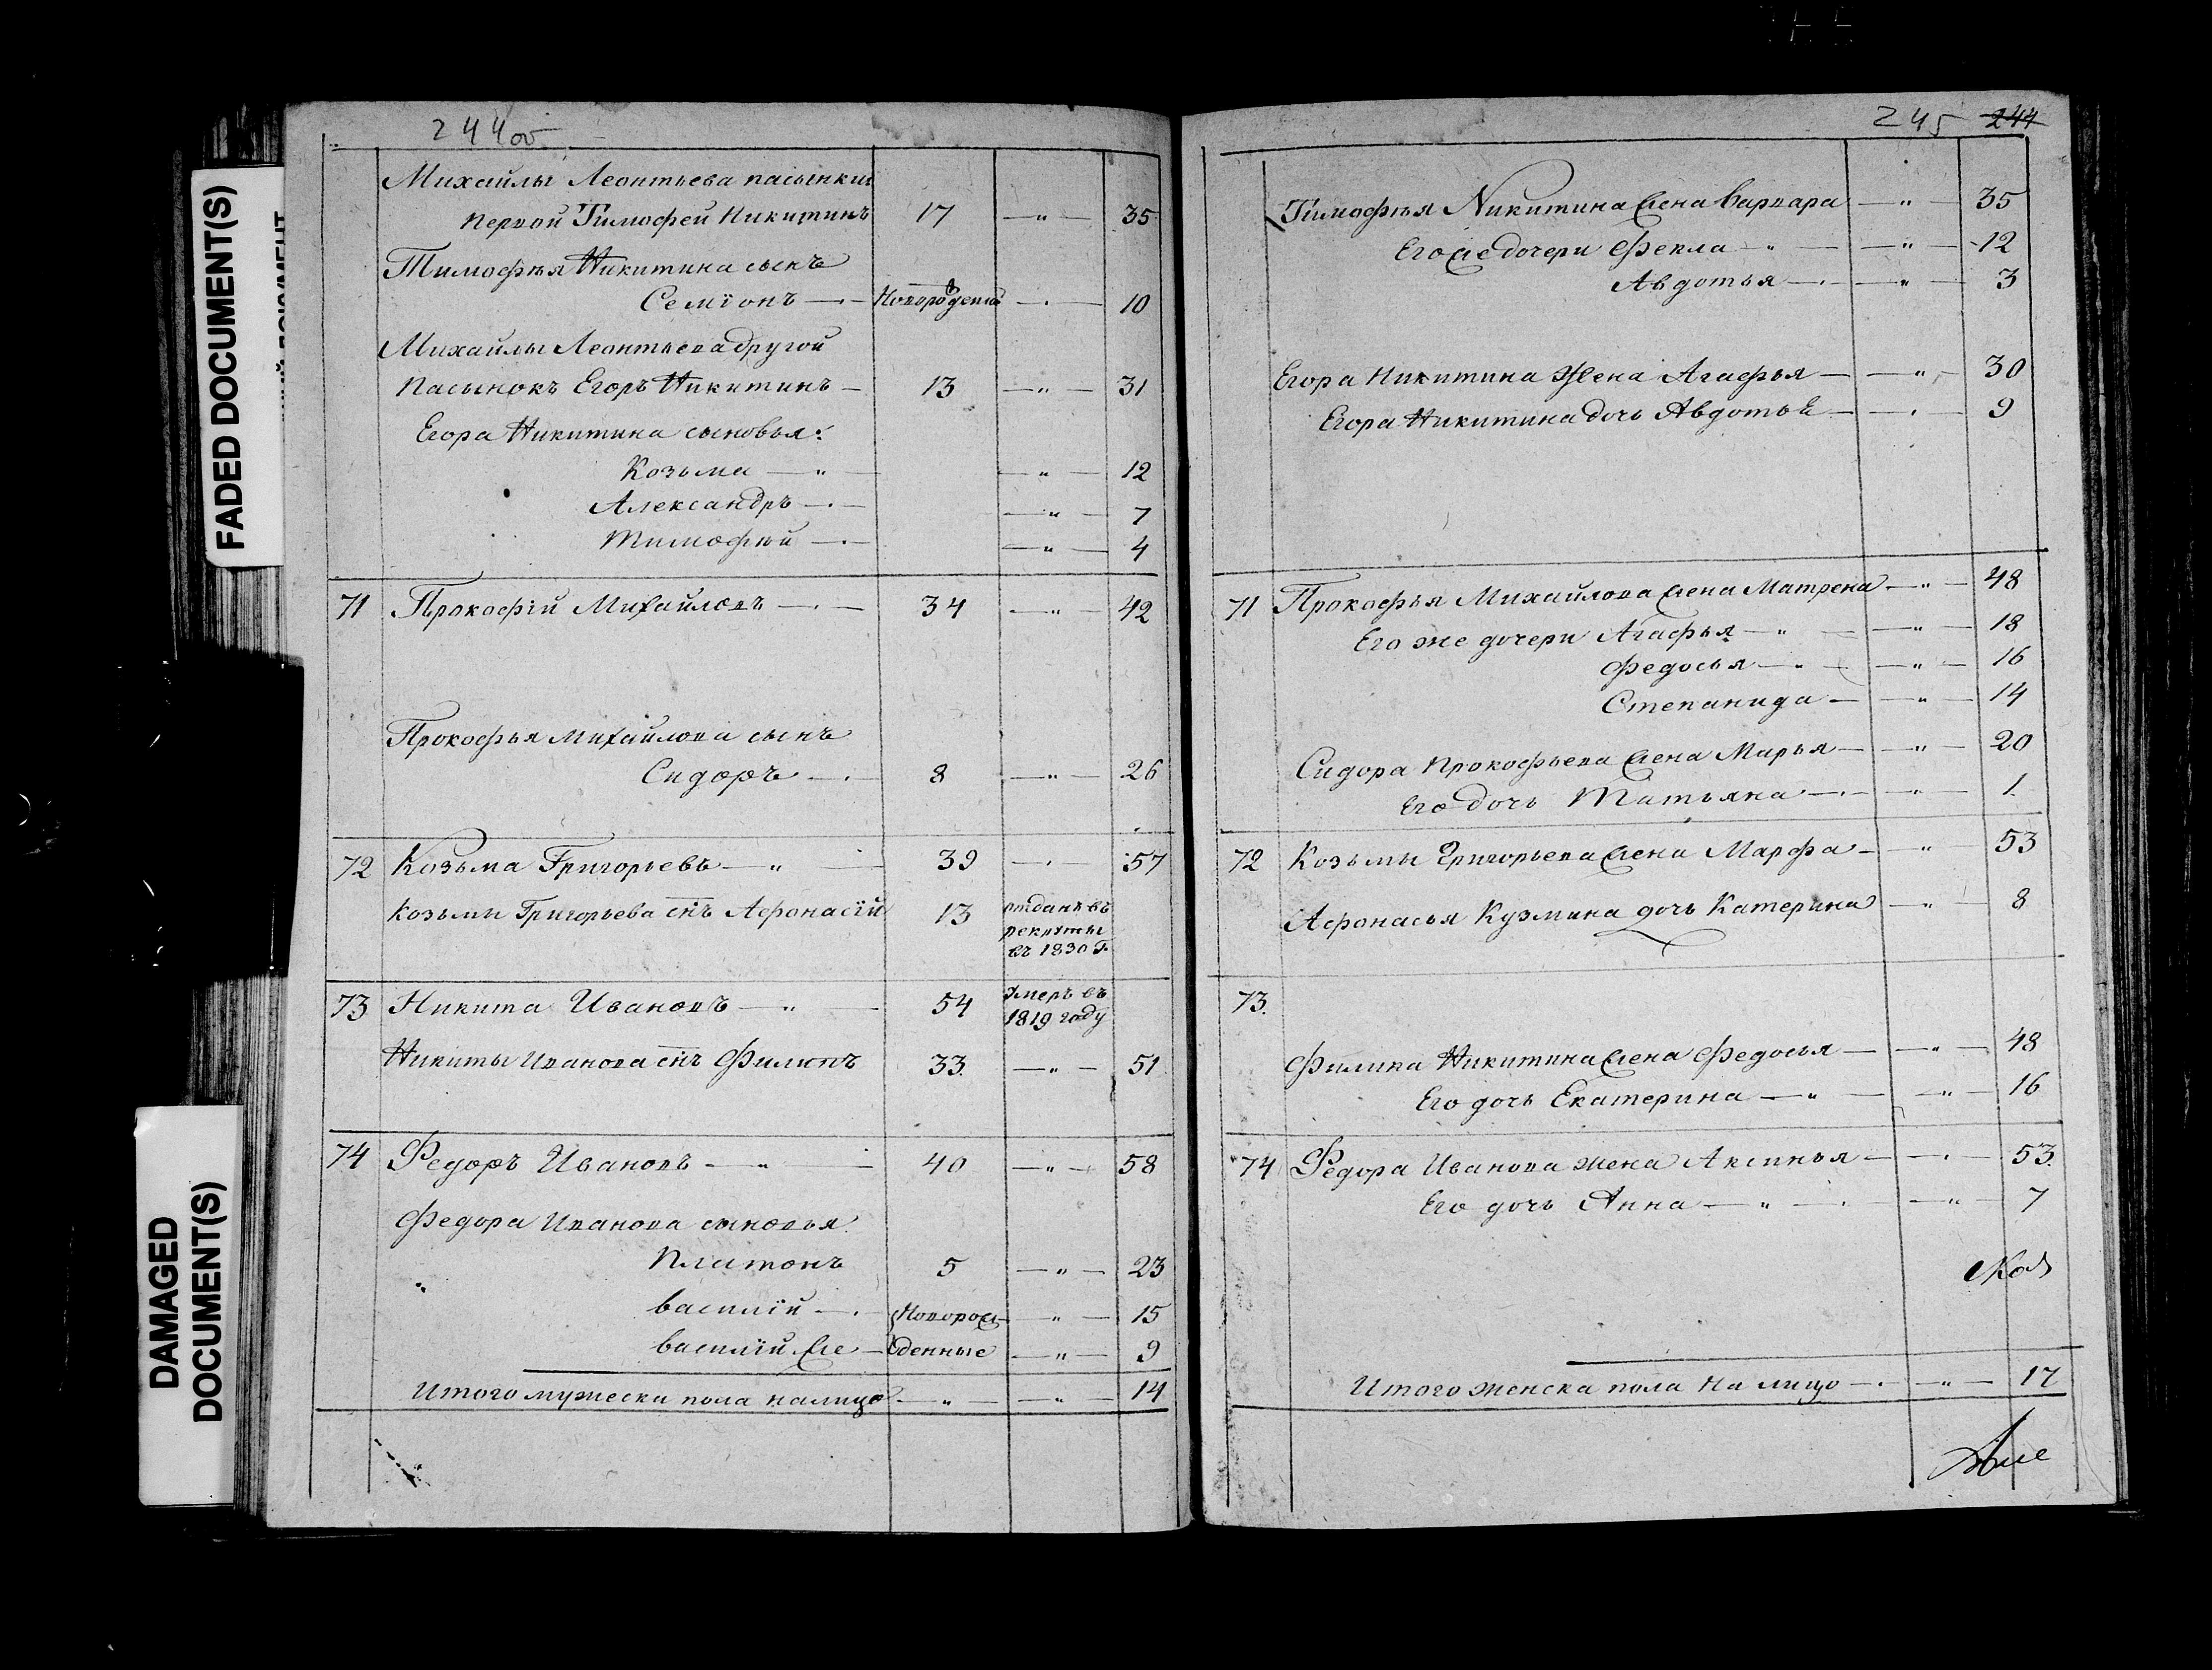 FADED DOCUMENT(S)
DAMAGED
DOCUMENT(S)
244об
Михайлы Леонтьева пасынки
первой Тимофей Никитинъ 17 — " — 35
Тимофѣя Никитина сынъ
Семіонъ — Новорожденой — 10
Михайлы Леонтьева другой
пасынокъ Егоръ Никитинъ — 13 — " — 31
Егора Никитина сыновья:
Козьма — " — — " — 12
Александръ — — " — 7
Тимофѣй — — " — 4
71 Прокофій Михайловъ — 34 — " — 42
Прокофья Михайлова сынъ
Сидоръ — 8 — " — 26
72 Козьма Григорьевъ — " — 39 — 57
Козьмы Григорьева снъ Афонасій 13 отданъ въ
рекруты
въ 1830 г.
73 Никита Ивановъ — " — 54 умеръ въ
1819 году
Никиты Иванова снъ Филипъ 33 — " — 51
74 Федоръ Ивановъ — " — 40 — " — 58
Федора Иванова сыновья
Платонъ 5 — " — 23
Василій — Новорож — " — 15
Василій же — денные — " — 9
Итого мужеска пола налицо — " — — " — 14
245 244
Тимофѣя Никитина жена Варвара — " — 35
Его же дочери Фекла — " — — " — 12
Авдотья — — " — 3
Егора Никитина жена Агафья — — " — 30
Егора Никитина дочь Авдотья — — 9
71 Прокофья Михайлова жена Матрена — " — 48
Его же дочери Агафья — " — — " — 18
Федосья — " — — " — 16
Степанида — — " — 14
Сидора Прокофьева жена Марья — — " — 20
Его дочь Татьяна — — " — 1
72 Козьмы Григорьева жена Марфа — " 53
Афонасья Кузмина дочь Катерина — " — 8
73.
Филипа Никитина жена Федосья — — " — 48
Его дочь Екатерина — " — — " — 16
74 Федора Иванова жена Аксинья — — 53.
Его дочь Анна — " — — " — 7
Итого женска пола на лицо — — " — 17